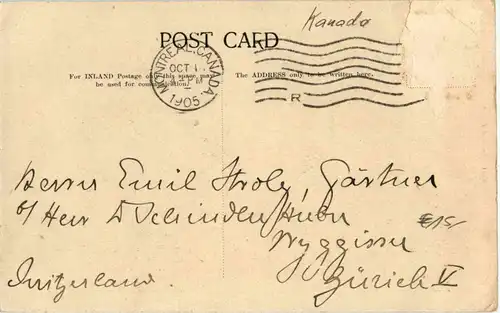 Kanada
POST CARD
MONTREAL, CANADA
OCT 1
PM
1905
R
For INLAND Postage only this space may
be used for communication.
The ADDRESS only to be written here.
Herrn Emil Strole, Gärtner
Herr D Schindler Huber
Zürich V
Switzerland.
€15,-